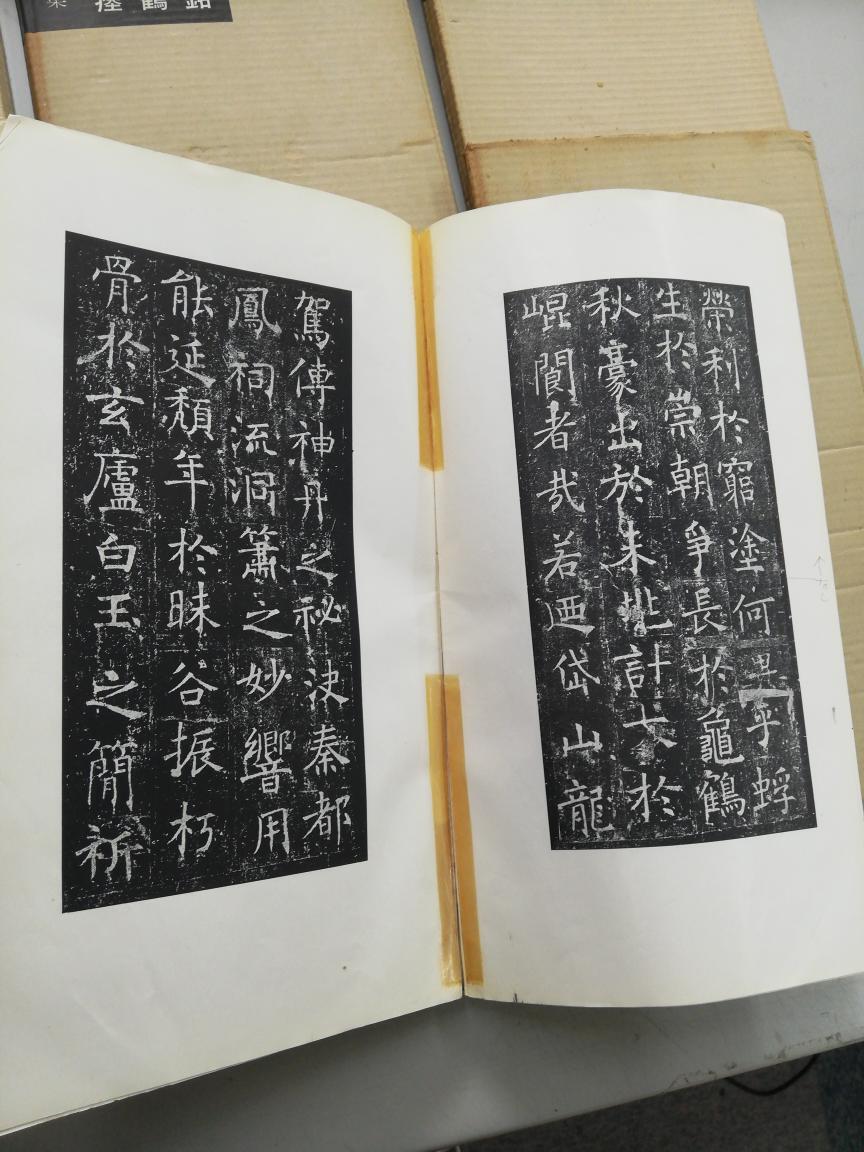 梁 瘞鶴銘
榮利於窮塗何異乎蜉
生於崇朝爭長於龜鶴
秋豪出於未 計大於
崐閬者哉若迺岱山龍
駕傳神丹之祕決秦都
鳳祠流洞簫之妙響用
能延頹年於昧谷振朽
骨於玄廬白玉之簡祈